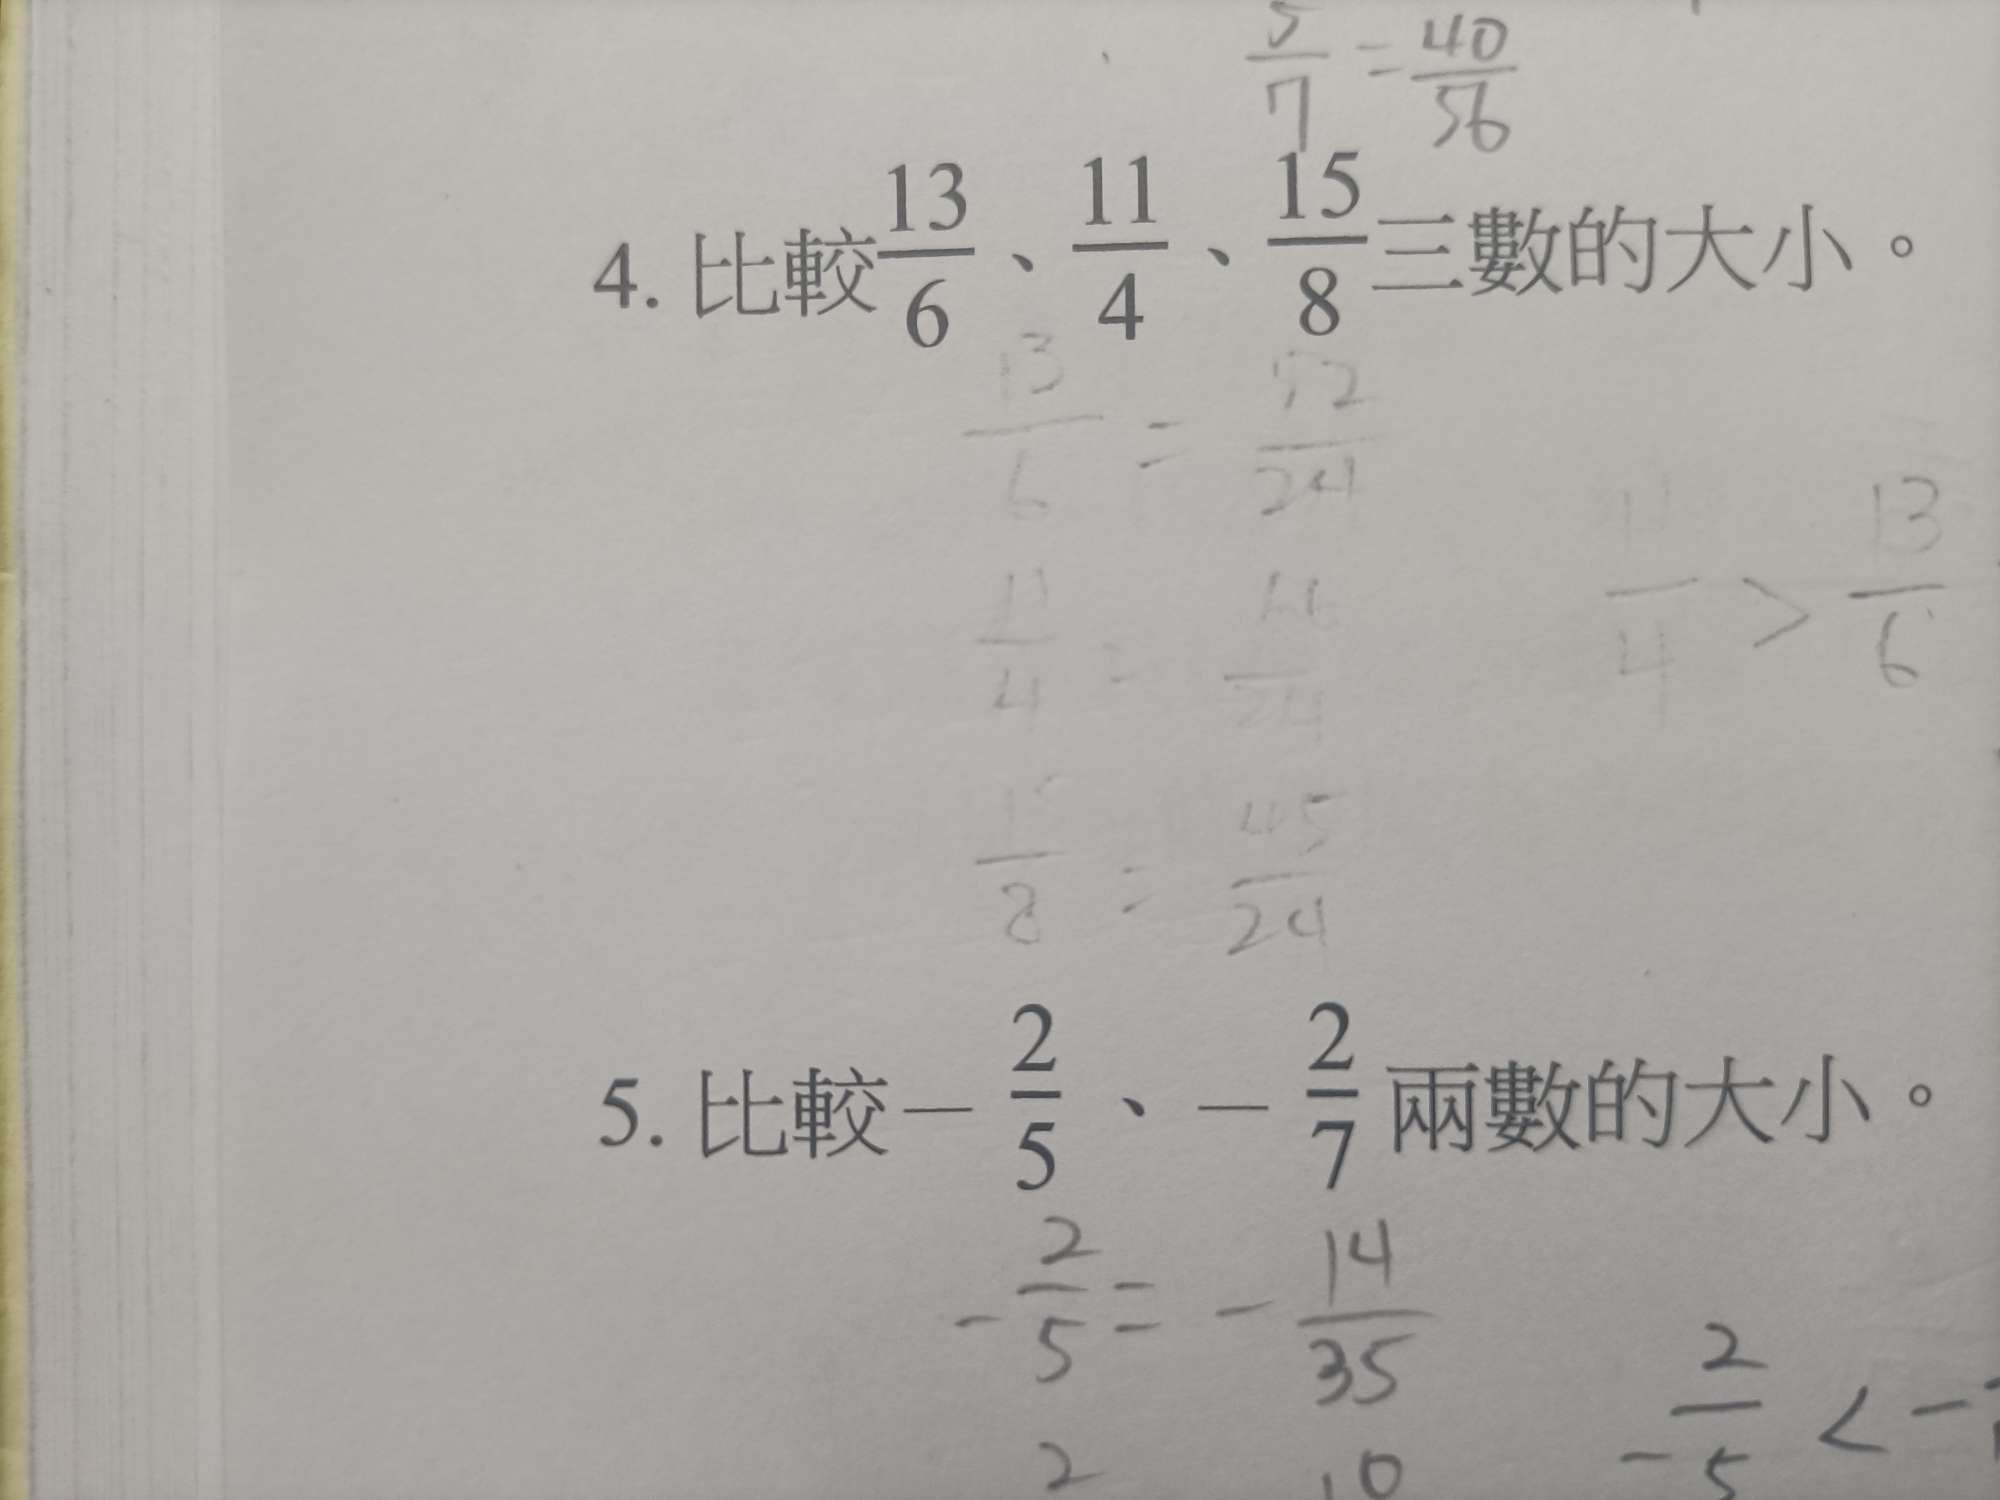 5/7 = 40/56
4. 比較 13/6、11/4、15/8 三數的大小。
13/6 = 52/24
11/4 = 66/24
11/4 > 13/6
15/8 = 45/24
5. 比較 － 2/5、－ 2/7 兩數的大小。
- 2/5 = - 14/35
- 2/5 < -
2 10